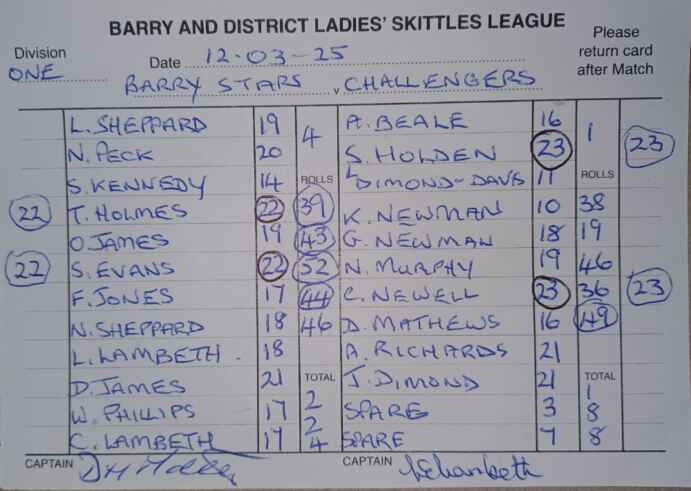 BARRY AND DISTRICT LADIES' SKITTLES LEAGUE
Please return card after Match
Division ONE Date 12-03-25
BARRY STARS v CHALLENGERS
L. SHEPPARD 19 4 A. BEALE 16 1
N. PECK 20 S. HOLDEN 23 23
S. KENNEDY 14 ROLLS L DIMOND-DAVIS 11 ROLLS
22 T. HOLMES 22 39 K. NEWMAN 10 38
O. JAMES 19 43 G. NEWMAN 18 19
22 S. EVANS 22 52 N. MURPHY 19 46
F. JONES 17 44 C. NEWELL 23 36 23
N. SHEPPARD 18 46 D. MATHEWS 16 49
L. LAMBETH. 18 A. RICHARDS 21
D. JAMES 21 TOTAL J. DIMOND 21 TOTAL
W. PHILLIPS 17 2 SPARE 3 1
C. LAMBETH 17 2 SPARE 7 8
4 8
CAPTAIN CAPTAIN